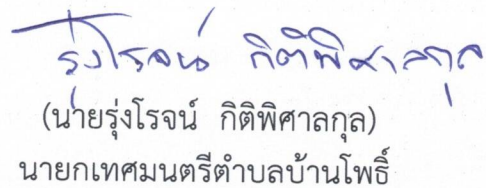 รุ่งโรจน์ กิติพิศาลกุล
(นายรุ่งโรจน์ กิติพิศาลกุล)
นายกเทศมนตรีตำบลบ้านโพธิ์